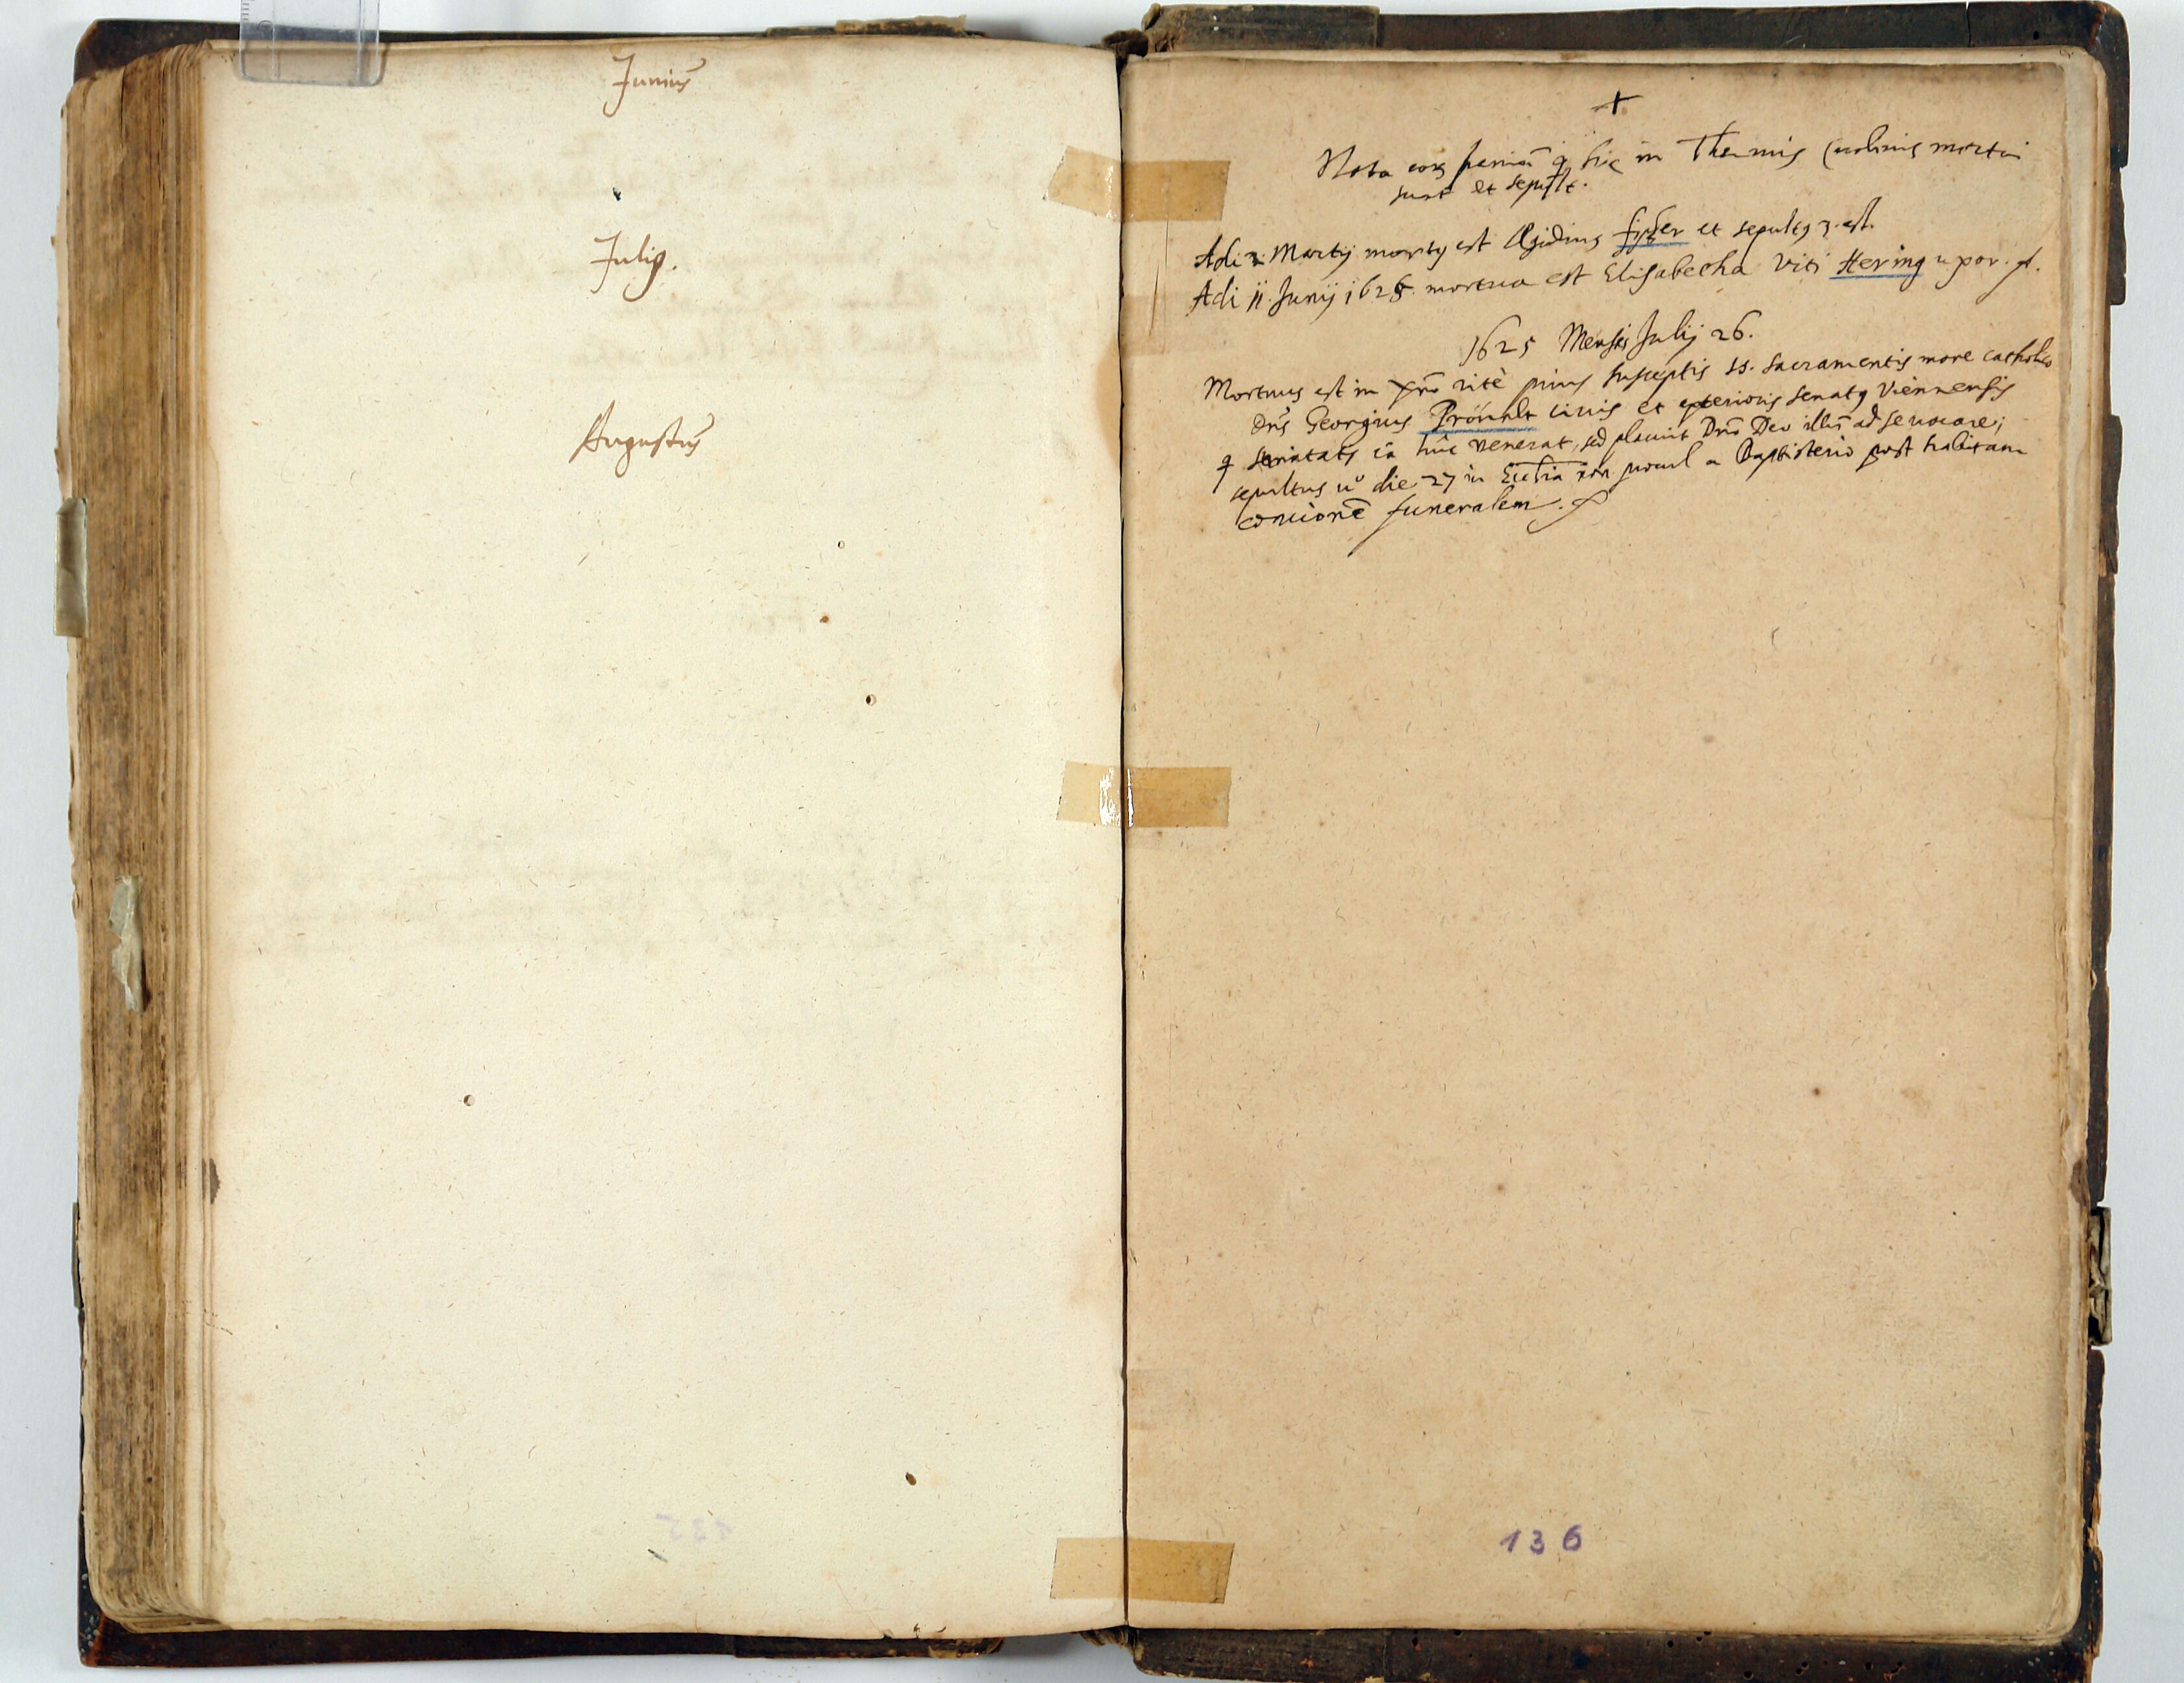 Juniũs
Juliꝯ.
Augustũs
+
Nota eoꝝ hic in Thermis mortui
sunt et sepult.
Adi 2 Martij mortꝯ est Ægidius et sepultꝯ 3. est.
Adi 11. Junij 1625. mortua est Elisabetha Viti Hering uxor.
1625 Mensis Julij 26.
Mortuus est in Xr̃o ritè prius susceptis SS. Sacramentis more catholico
Dn̄s Georgius Pröuualt ciuis et exterioris Senatꝯ Viennensis
q̃ sanitatis cã huc venerat, sed placuit Dn̄o Deo illũ ad se uocare;
sepultus ũo die 27 in Eccl̃ia non procul a Baptisterio post habitam
concionẽ funeralem.
136